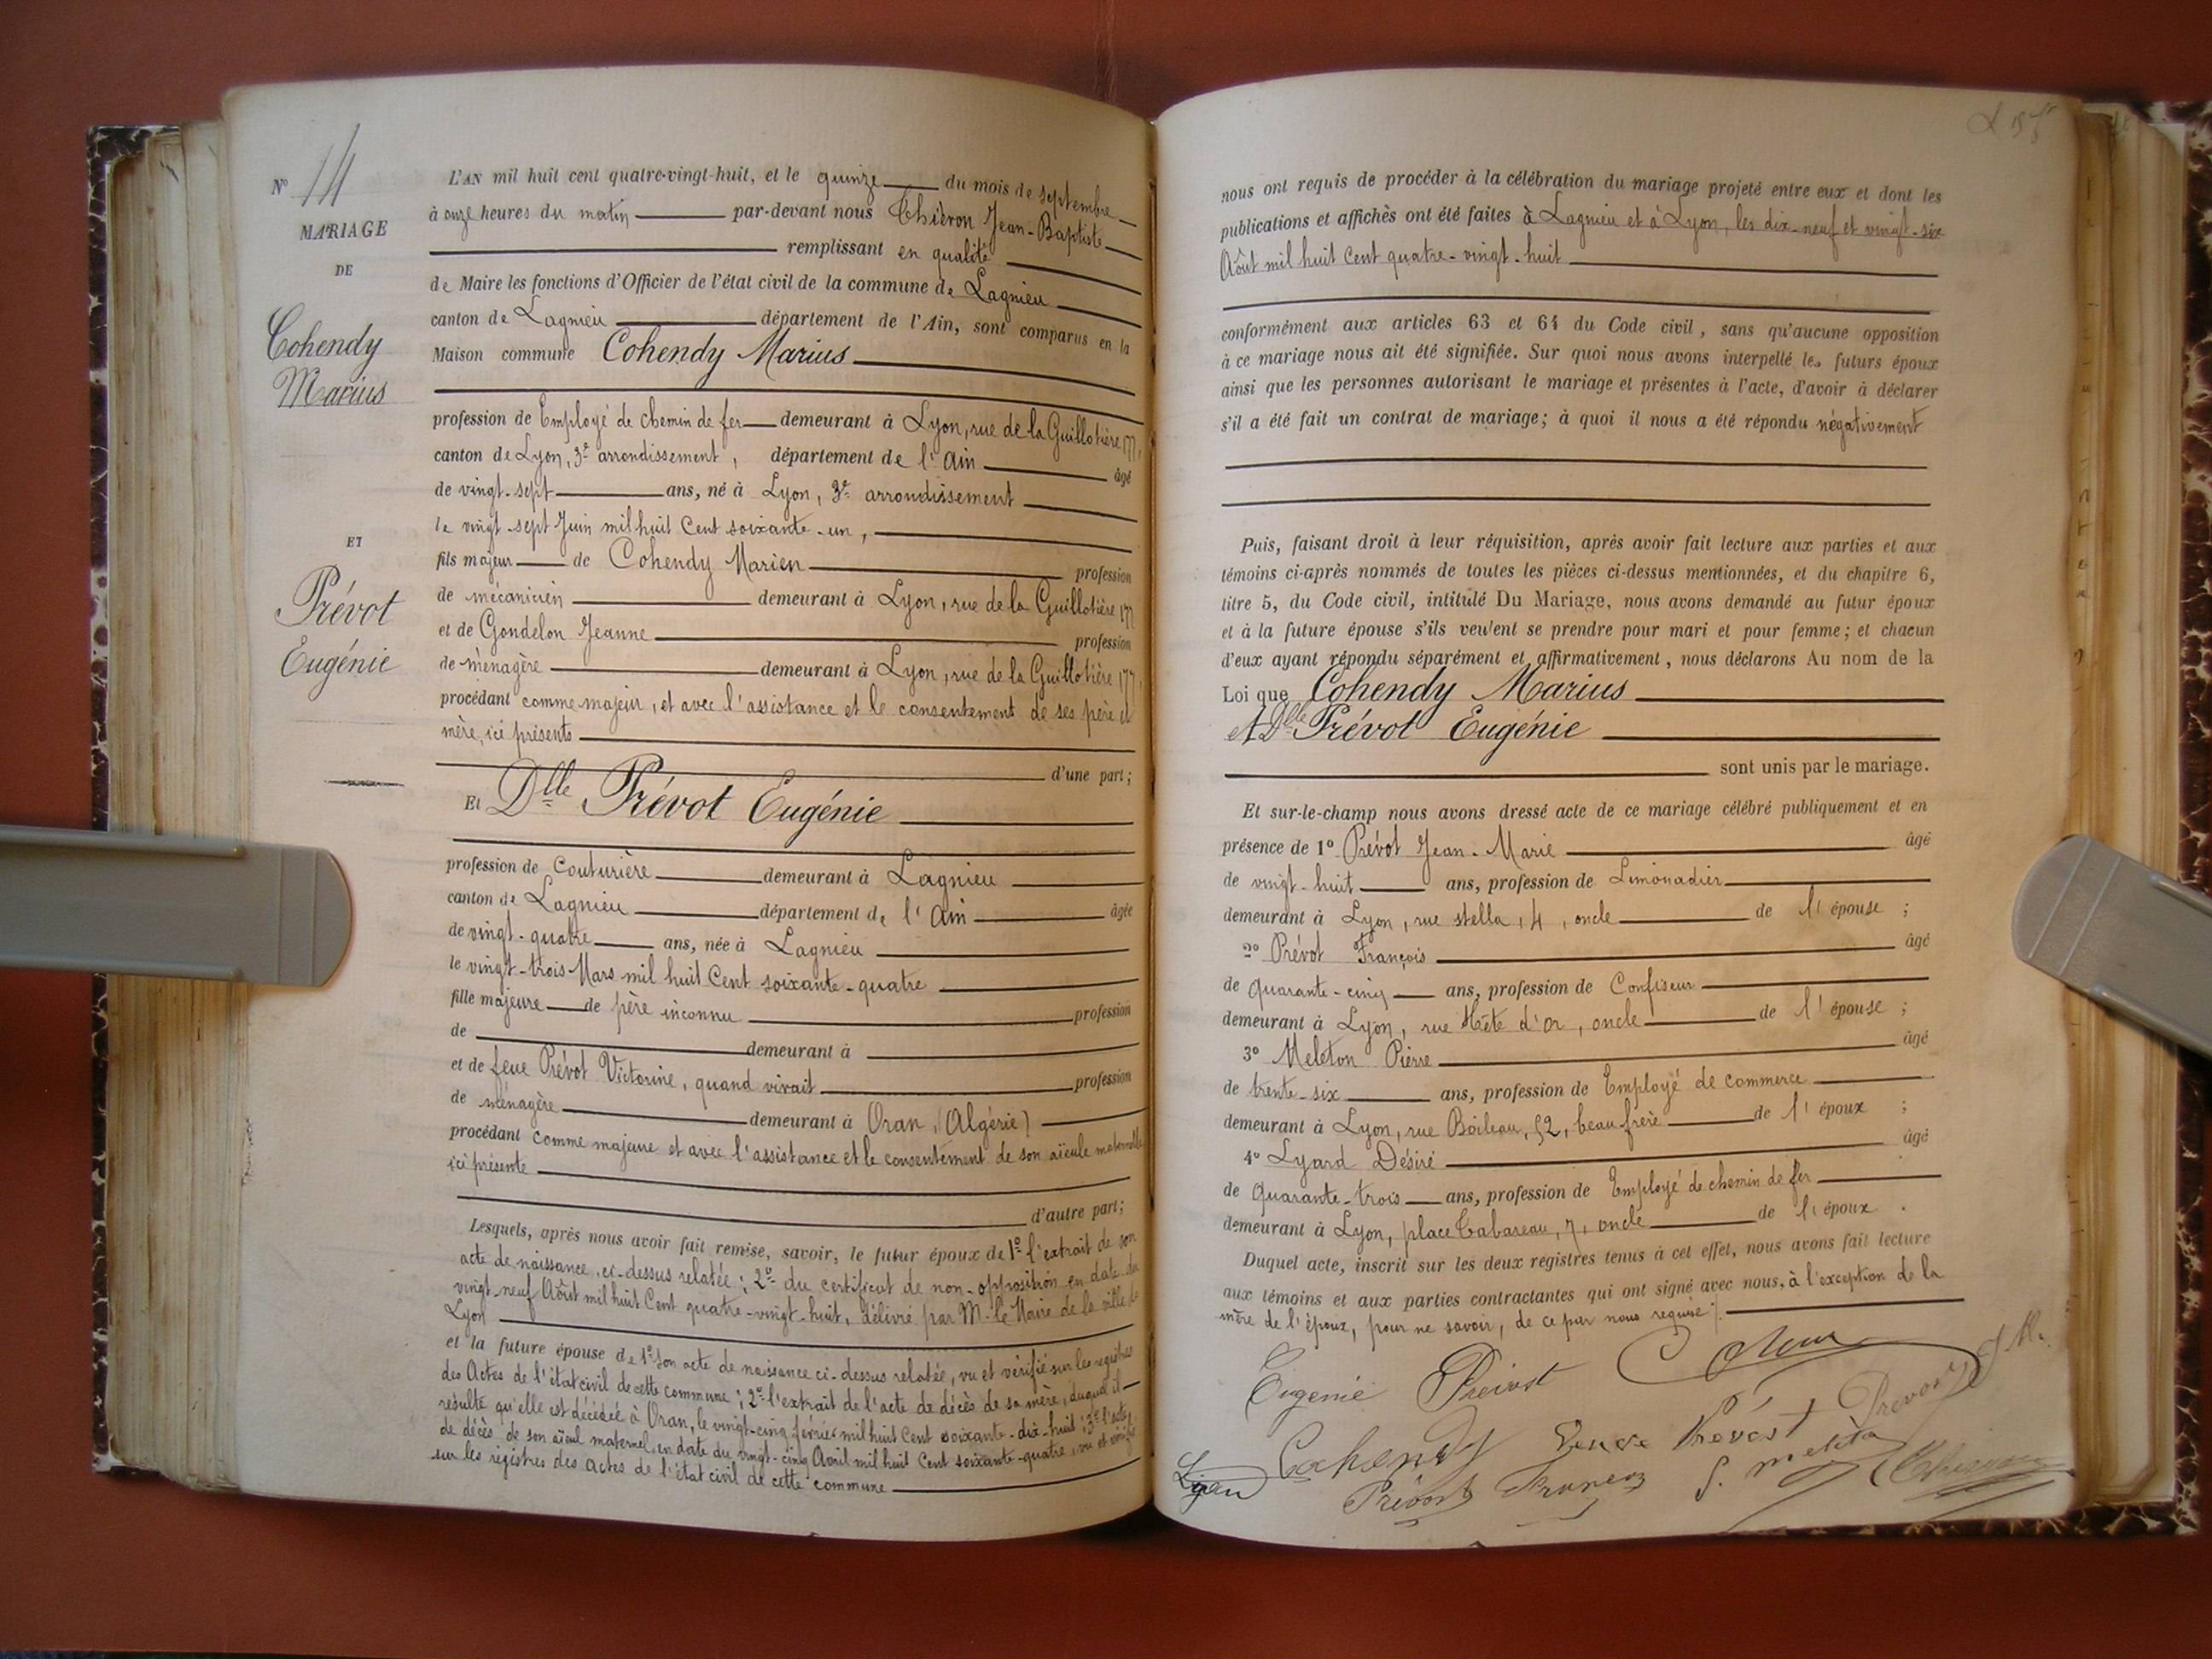 N° 14
MARIAGE
DE
Cohendy
Marius
ET
Prévot
Eugénie
L'AN mil huit cent quatre-vingt-huit, et le quinze du mois de septembre
à onze heures du matin par-devant nous Thiévon Jean-Baptiste
remplissant en qualité
de Maire les fonctions d'Officier de l'état civil de la commune de Lagnieu
canton de Lagnieu département de l'Ain, sont comparus en la
Maison commune Cohendy Marius
profession de Employé de chemin de fer demeurant à Lyon, rue de la Guillotière 177,
canton de Lyon, 3e arrondissement, département de l'Ain âgé
de vingt-sept ans, né à Lyon, 3e arrondissement
le vingt-sept Juin mil huit Cent soixante-un,
fils majeur de Cohendy Marien profession
de mécanicien demeurant à Lyon, rue de la Guillotière 177
et de Gondelon Jeanne profession
de ménagère demeurant à Lyon, rue de la Guillotière 177,
procédant comme majeur, et avec l'assistance et le consentement de ses père et
mère, ici présents
d'une part;
Et Dlle Prévot Eugénie
profession de Couturière demeurant à Lagnieu
canton de Lagnieu département de l'Ain âgée
de vingt-quatre ans, née à Lagnieu
le vingt-trois Mars mil huit Cent soixante-quatre
fille majeure de père inconnu profession
de demeurant à
et de feue Prévot Victorine, quand vivait profession
de ménagère demeurant à Oran, (Algérie)
procédant comme majeure et avec l'assistance et le consentement de son aïeule maternelle
ici présente
d'autre part;
Lesquels, après nous avoir fait remise, savoir, le futur époux de 1° l'extrait de son
acte de naissance, ci-dessus relatée; 2° du certificat de non-opposition en date du
vingt-neuf Août mil huit Cent quatre-vingt-huit, délivré par M. le Maire de la ville de
Lyon
et la future épouse de 1° son acte de naissance ci-dessus relatée, vu et vérifié sur les registres
des Actes de l'état civil de cette commune; 2° l'extrait de l'acte de décès de sa mère, duquel il
résulte qu'elle est décédée à Oran, le vingt-cinq février mil huit Cent soixante-dix-huit; 3° l'acte
de décès de son aïeul maternel, en date du vingt-cinq Avril mil huit Cent soixante-quatre, vu et vérifié
sur les registres des actes de l'état civil de cette commune
nous ont requis de procéder à la célébration du mariage projeté entre eux et dont les
publications et affichés ont été faites à Lagnieu et à Lyon, les dix-neuf et vingt-six
Août mil huit Cent quatre-vingt-huit
conformément aux articles 63 et 64 du Code civil, sans qu'aucune opposition
à ce mariage nous ait été signifiée. Sur quoi nous avons interpellé les futurs époux
ainsi que les personnes autorisant le mariage et présentes à l'acte, d'avoir à déclarer
s'il a été fait un contrat de mariage; à quoi il nous a été répondu négativement
Puis, faisant droit à leur réquisition, après avoir fait lecture aux parties et aux
témoins ci-après nommés de toutes les pièces ci-dessus mentionnées, et du chapitre 6,
titre 5, du Code civil, intitulé Du Mariage, nous avons demandé au futur époux
et à la future épouse s'ils veulent se prendre pour mari et pour femme; et chacun
d'eux ayant répondu séparément et affirmativement, nous déclarons Au nom de la
Loi que Cohendy Marius
et Dlle Prévot Eugénie
sont unis par le mariage.
Et sur-le-champ nous avons dressé acte de ce mariage célébré publiquement et en
présence de 1° Prévot Jean-Marie âgé
de vingt-huit ans, profession de Limonadier
demeurant à Lyon, rue stella, 4, oncle de l'épouse;
2° Prévot François âgé
de Quarante-cinq ans, profession de Confiseur
demeurant à Lyon, rue tête d'or, oncle de l'épouse;
3° Meleton Pierre âgé
de trente-six ans, profession de Employé de commerce
demeurant à Lyon, rue Boileau, 52, beau frère de l'époux;
4° Lyard Désiré âgé
de Quarante-trois ans, profession de Employé de chemin de fer
demeurant à Lyon, place Tabareau, 7, oncle de l'époux.
Duquel acte, inscrit sur les deux registres tenus à cet effet, nous avons fait lecture
aux témoins et aux parties contractantes qui ont signé avec nous, à l'exception de la
mère de l'époux, pour ne savoir, de ce par nous requise.
Eugenie Prévost
Cohendy